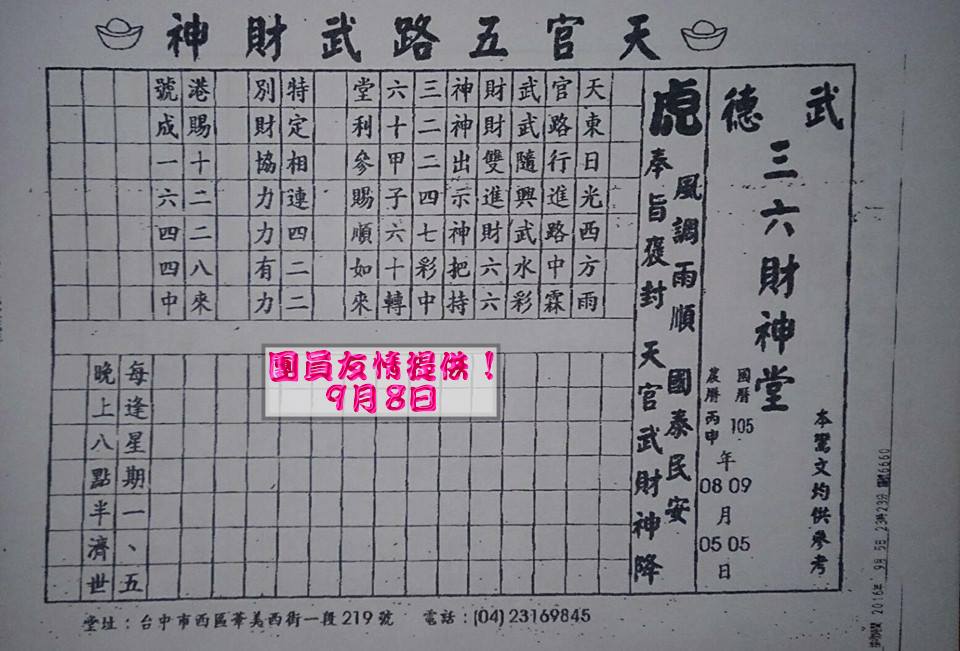 天官五路武財神
武德
三六財神堂
本鸞文均供參考
國曆105年09月05日
農曆丙申 08 05
虎
風調雨順 國泰民安
奉旨褒封 天官武財神降
天東日光西方雨
官路行進路中霖
武武隨興武水彩
財財雙進財六六
神神出示神把持
三二二四七彩中
六十甲子六十轉
堂利參賜順如來
特定相連四二二
別財協力力有力
港賜十二二八來
號成一六四四中
團員友情提供！
9月8日
每逢星期一、五
晚上八點半濟世
堂址：台中市西區華美西街一段219號 電話：(04)23169845
2016年 9月 5日 23時23分